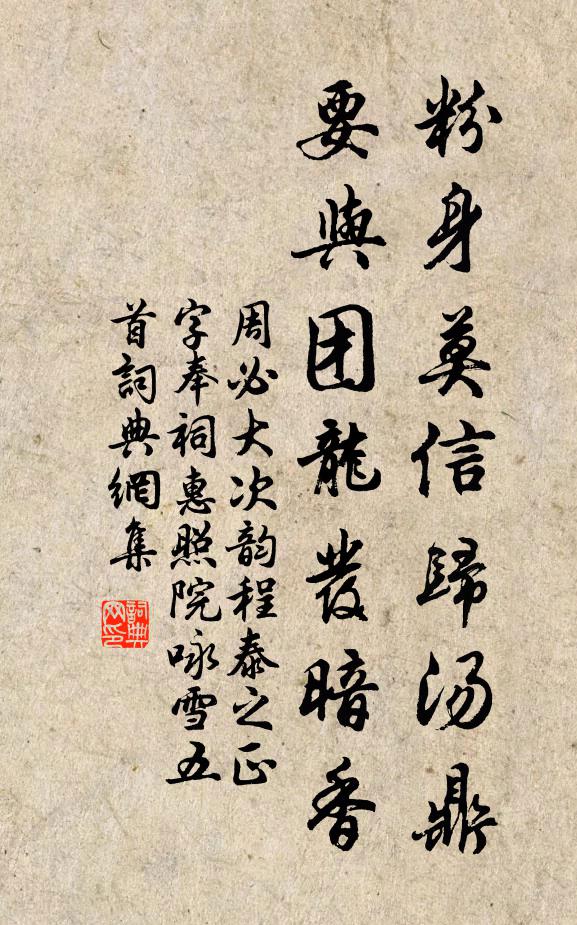 粉身莫信歸汤鼎
要與团龍發暗香
周必大次韵程泰之正
字奉祠惠照院咏雪五
首詞典網集
詞典网印